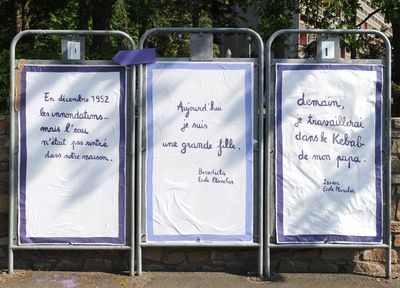 En décembre 1952
les innondations
mais l'eau
n'était pas rentré
dans notre maison.
Aujourd'hui
je suis
une grande fille.
Benedicta
Ecole Plancher
1
demain,
je travaillerai
dans le Kebab
de mon papa.
Ecole Plancher